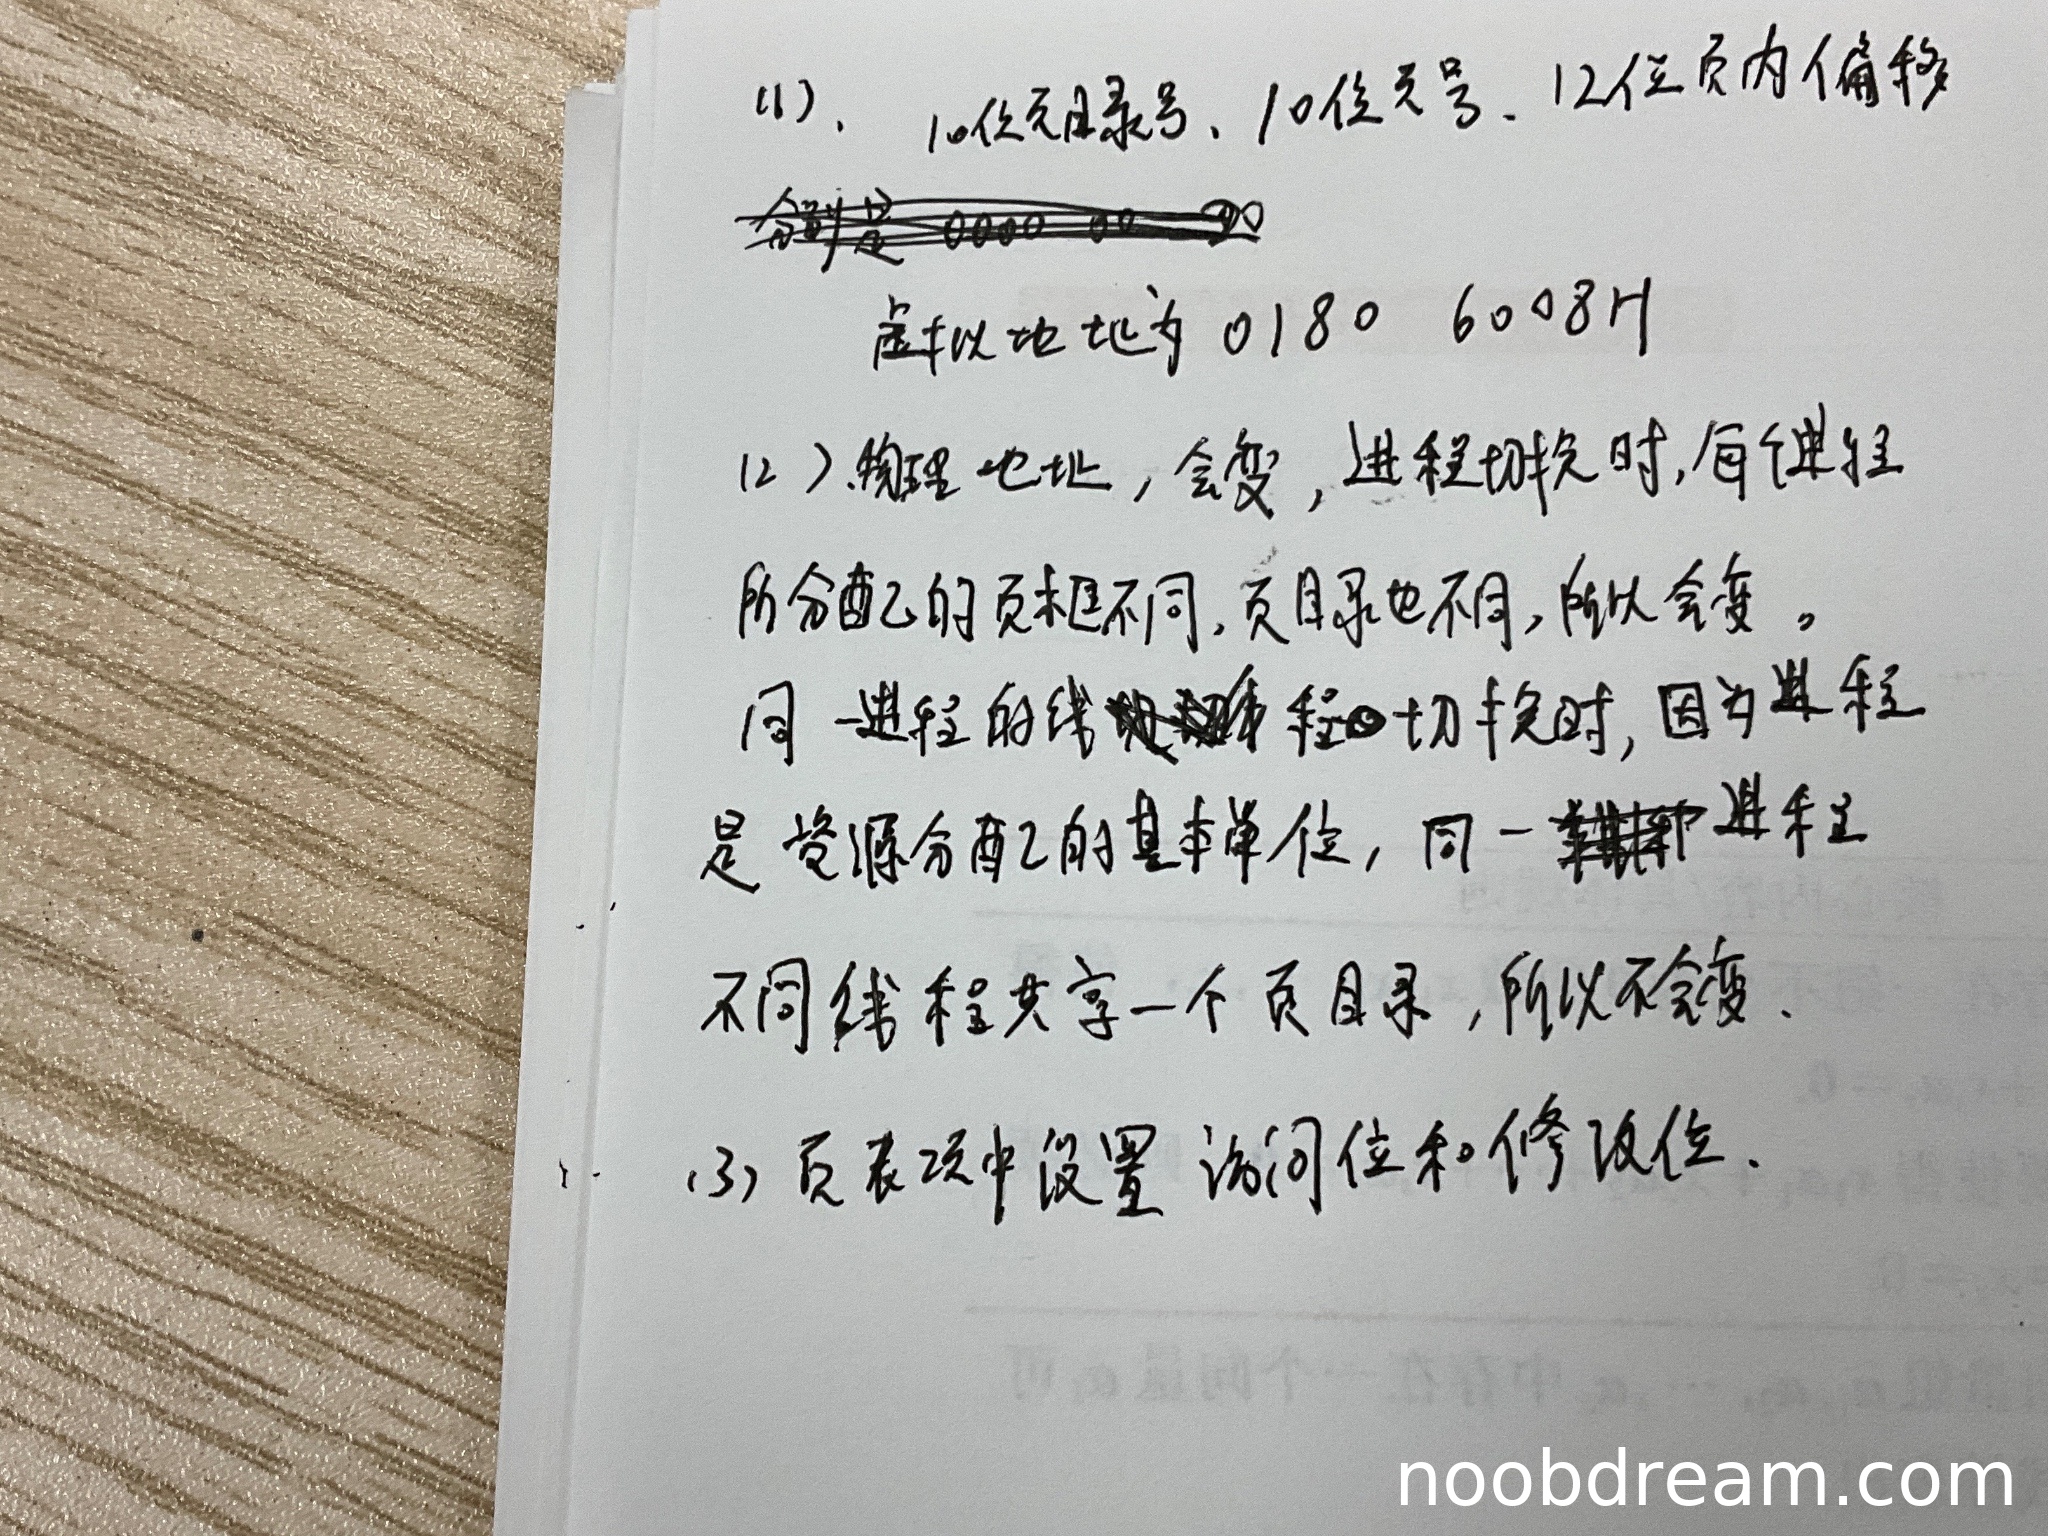 (1)、 10位页目录号、10位页号、12位页内偏移
虚拟地址为 0180 6008H
(2)、物理地址,会变,进程切换时,每个进程
所分配的页框不同,页目录也不同,所以会变。
同一进程的线程切换时,因为进程
是资源分配的基本单位,同一进程
不同线程共享一个页目录,所以不会变.
(3) 页表项中设置 访问位和修改位.
noobdream.com